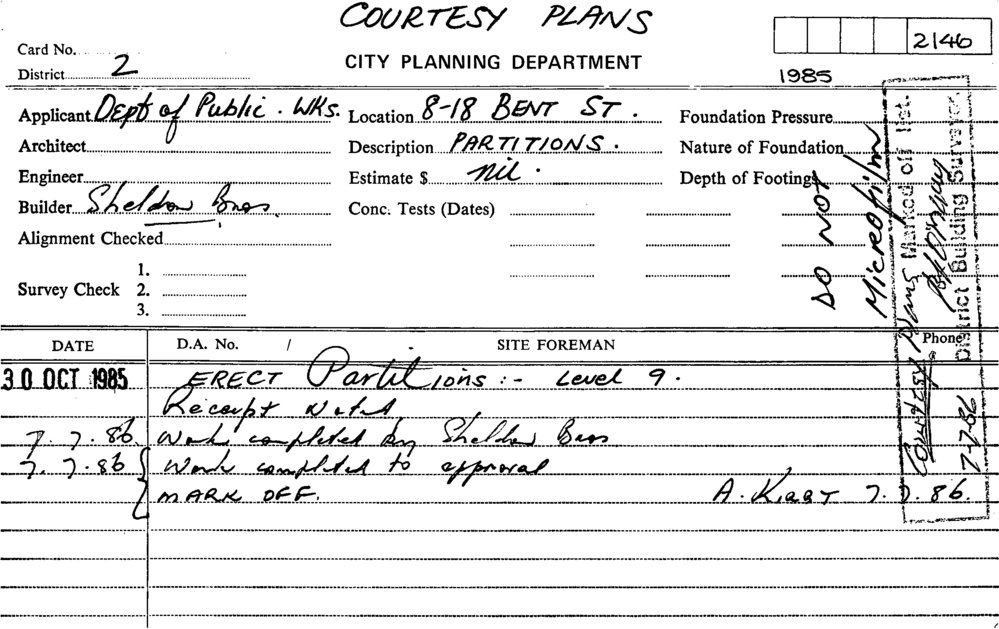 COURTESY PLANS
2146
Card No.
District 2
CITY PLANNING DEPARTMENT
1985
Applicant Dept of Public. WKS.
Location 8-18 BENT ST.
Foundation Pressure
Architect
Description PARTITIONS.
Nature of Foundation
Engineer
Estimate $ nil.
Depth of Footings
Builder Sheldon Bros.
Conc. Tests (Dates)
Alignment Checked
Survey Check 1.
2.
3.
DO NOT
Microfilm
Courtesy Plans Marked off list.
7-7-86 District Building Surveyor
DATE D.A. No. / SITE FOREMAN Phone
30 OCT 1985 ERECT Partitions :- Level 9.
Receipt Noted
7.7.86 Work completed by Sheldon Bros
7.7.86 Work completed to approval
MARK OFF. A. 7.7.86.